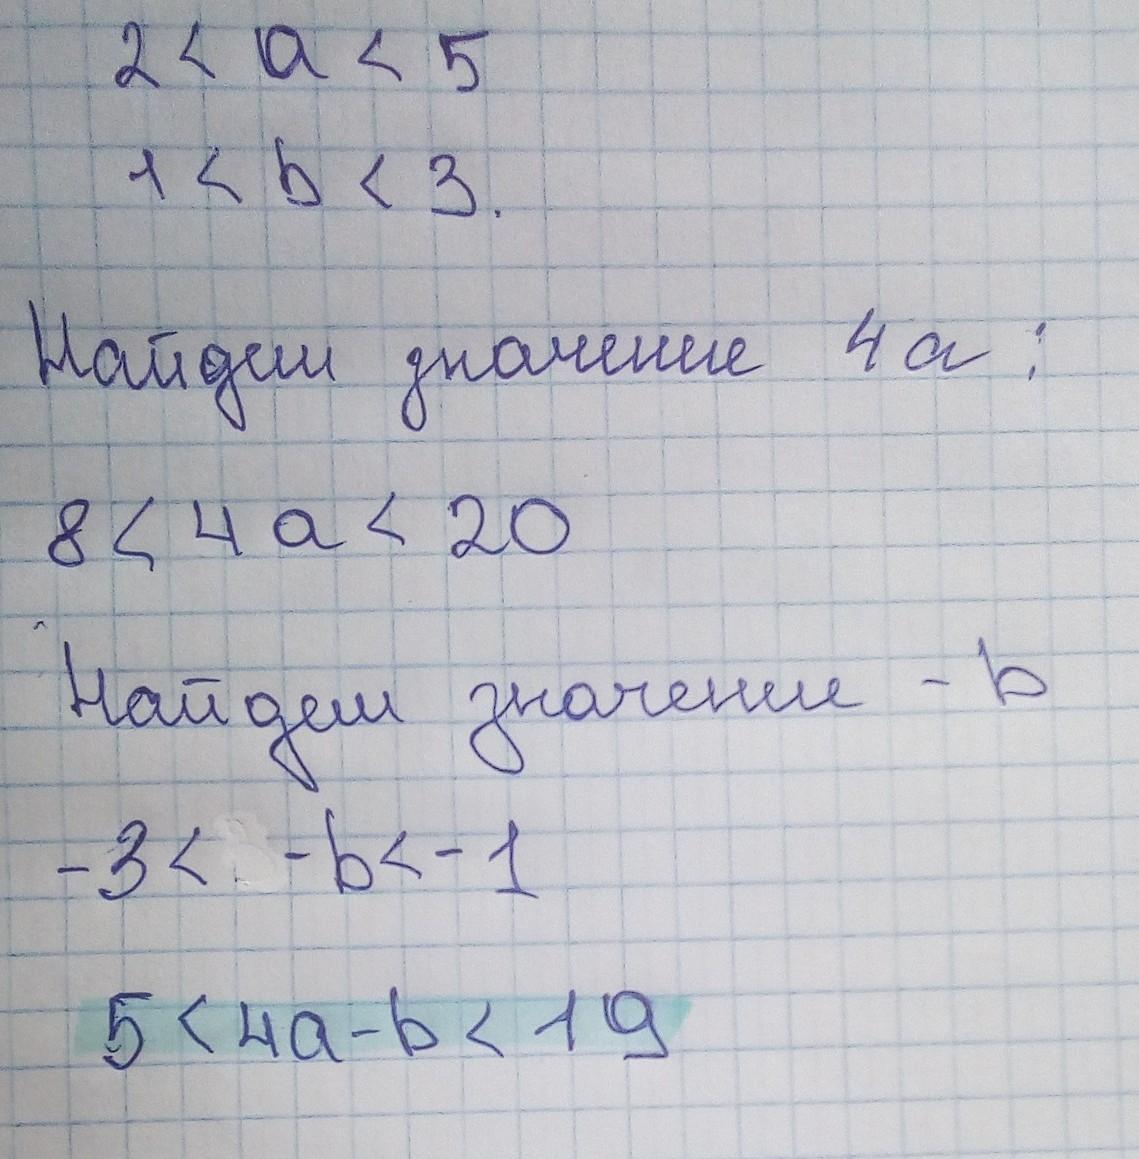 2 < a < 5
1 < b < 3.
Найдем значение 4a:
8 < 4a < 20
Найдем значение -b
-3 < -b < -1
5 < 4a - b < 19